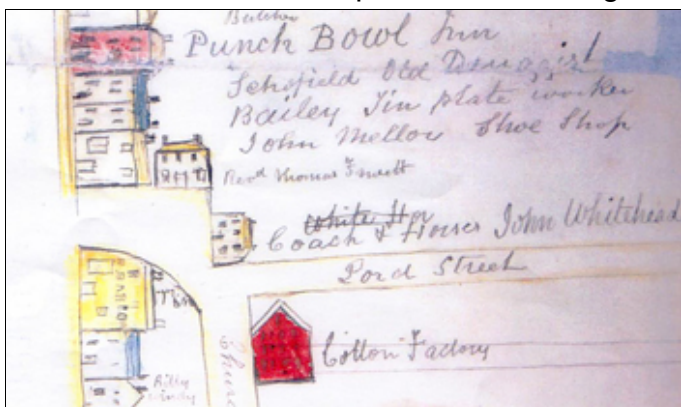 Butcher
Punch Bowl Inn
Schofield Old Druggist
Bailey Tin plate worker
John Mellor Shoe Shop
Revd Thomas
White Hor
Coach & Horses John Whitehead
Lord Street
Cotton Factory
Billy
Windy